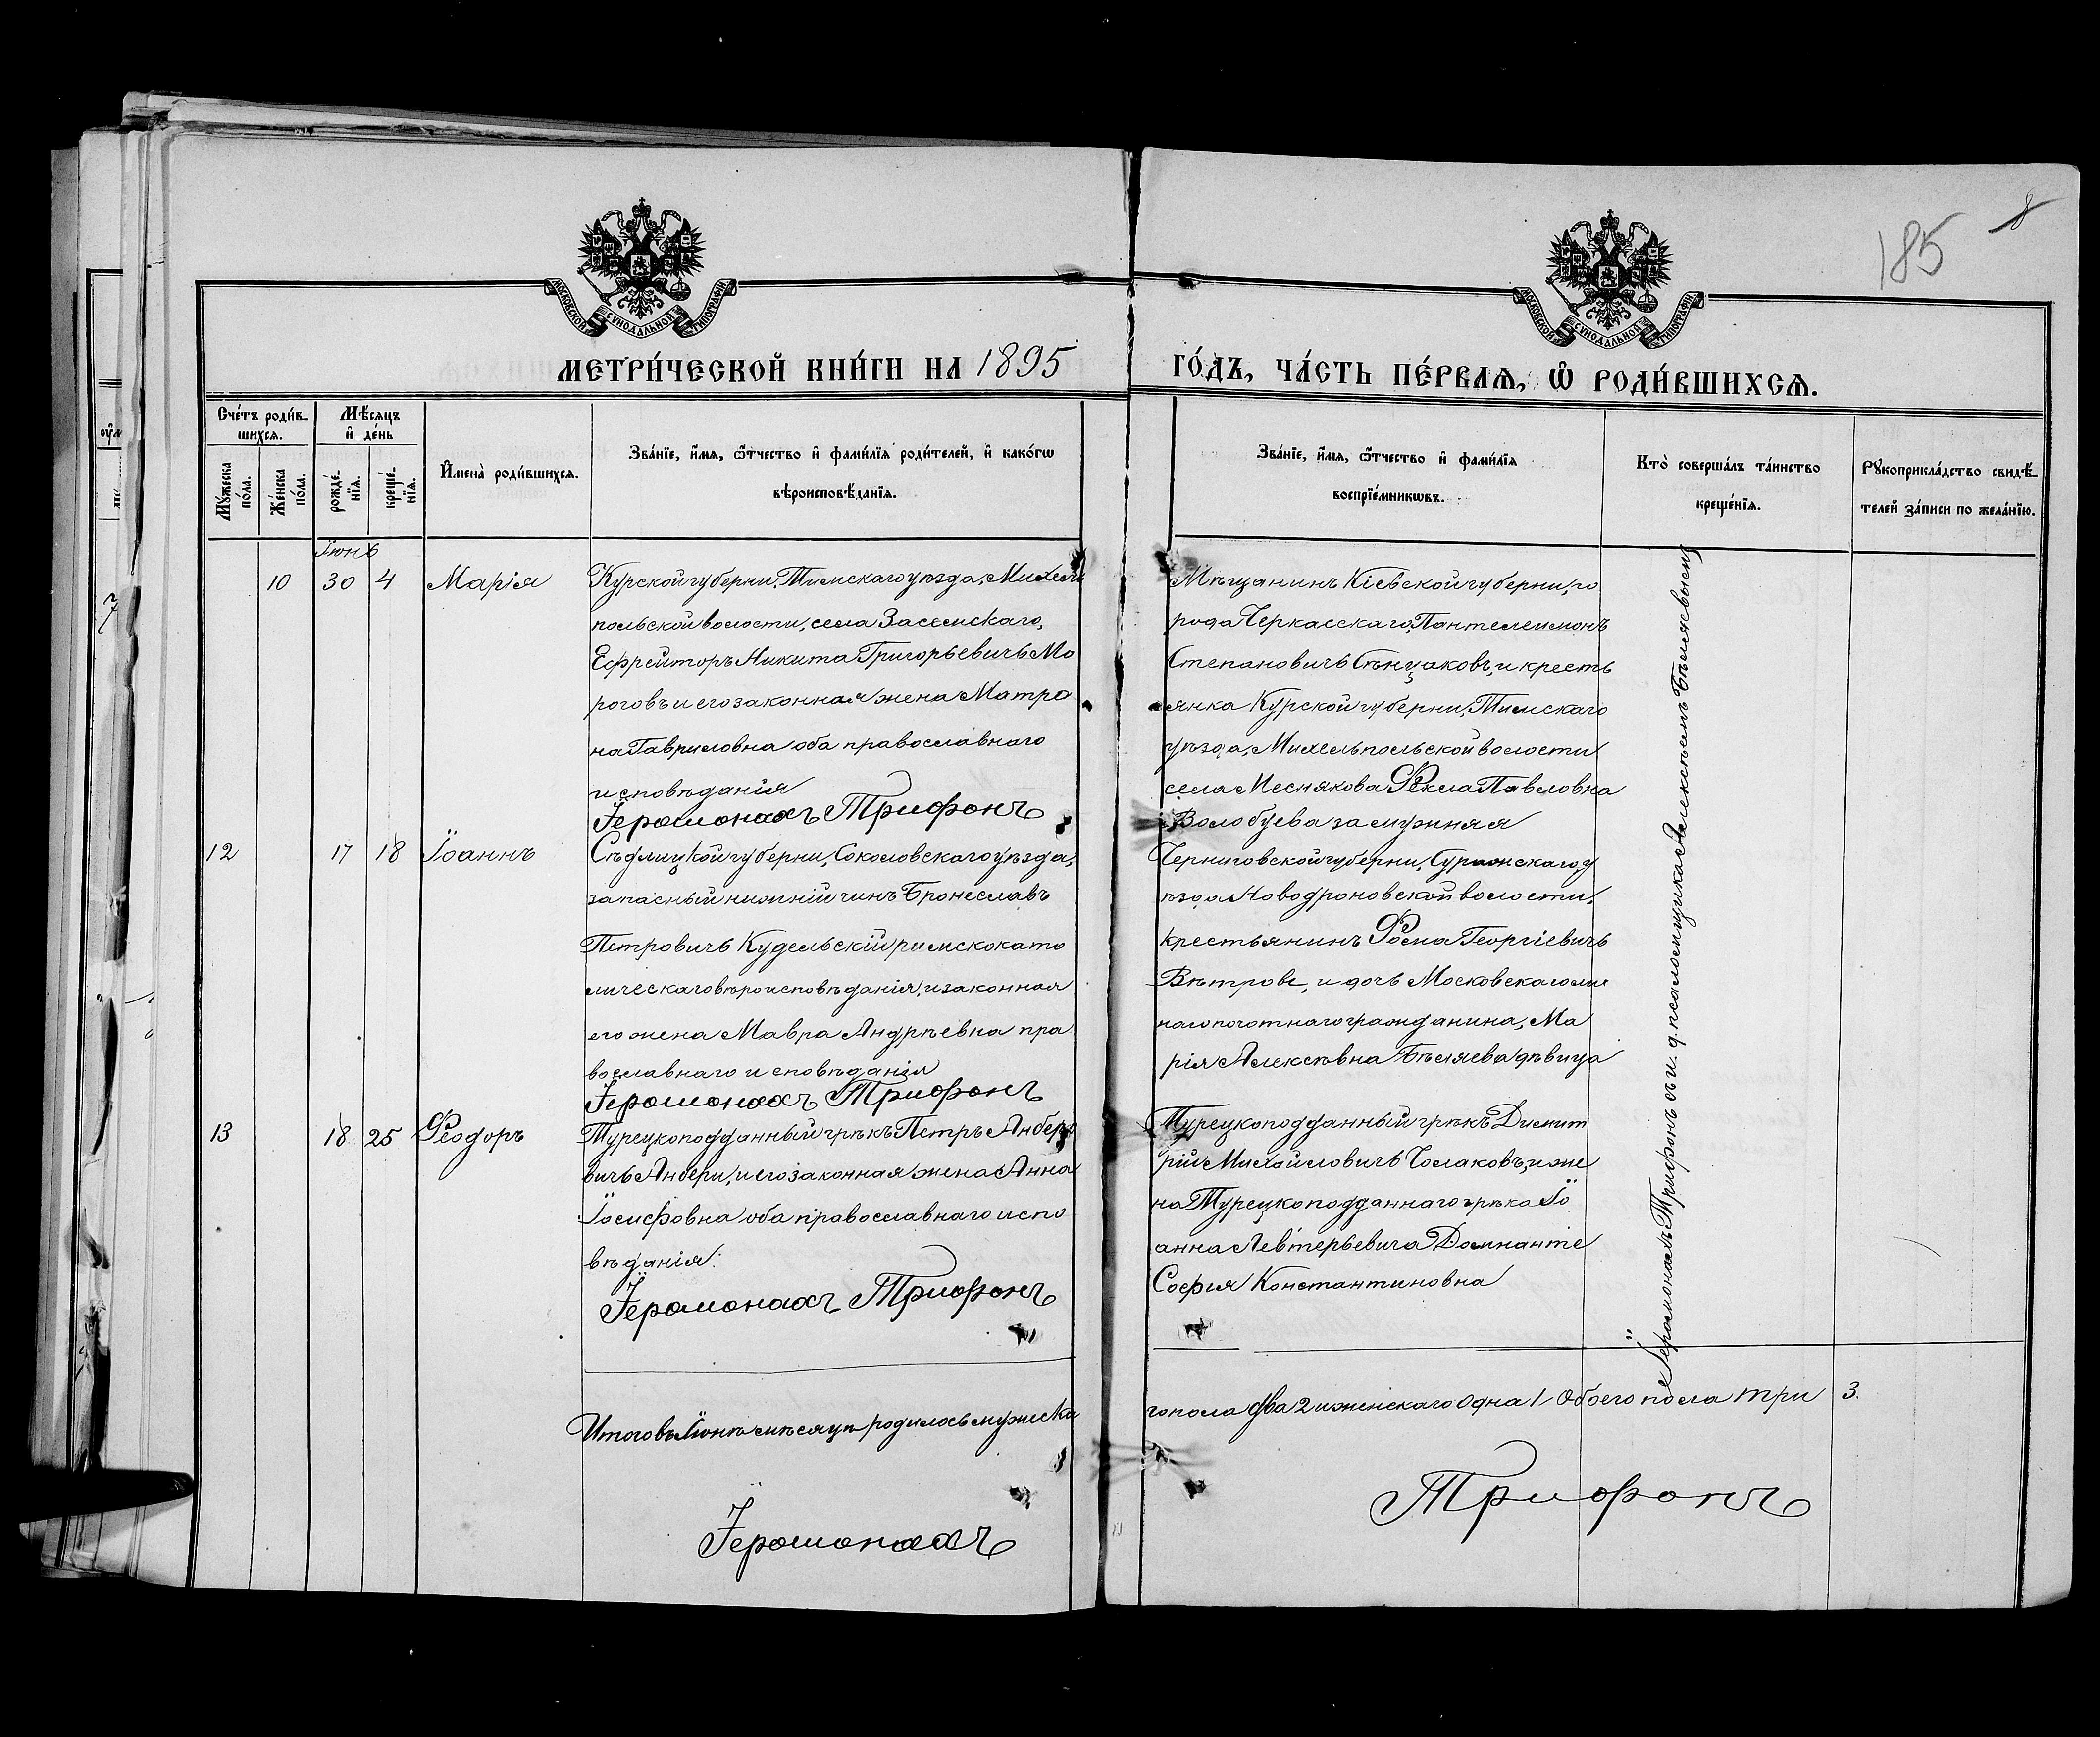 185 8
МОСКОВСКОЙ СѴНОДАЛЬНОЙ ТИПОГРАФІИ
МОСКОВСКОЙ СѴНОДАЛЬНОЙ ТИПОГРАФІИ
МЕТРИ́ЧЕСКОЙ КНИ́ГИ НА 1895
ГО́ДЪ, ЧА́СТЬ ПЕ́РВАѦ, Ѽ РОДИ́ВШИХСѦ.
Сче́тъ роди́в-
шихсѧ.
Мѣ́сѧцъ
и҆ де́нь
Мꙋ́жеска
по́ла.
Же́нска
по́ла.
рожде́-
нїѧ.
креще́-
нїѧ.
И҆мена̀ роди́вшихсѧ.
Зва́нїе, и҆́мѧ, ѻ҆́тчество и҆ фами́лїѧ роди́телей, и҆ како́гѡ
вѣроисповѣ́данїѧ.
Зва́нїе, и҆́мѧ, ѻ҆́тчество и҆ фами́лїѧ
воспрїе́мникѡвъ.
Кто̀ соверша́лъ та́инство
креще́нїѧ.
Рꙋкоприкла́дство свидѣ́-
телей за́писи по жела́нїю.
Іюнь
10 30 4 Марія
Курской губерни, Тимскаго уѣзда, Михель
польской волости, села Засемскаго,
Ефрейторъ Никита Григорьевичъ Мо
роговъ и его законная жена Матро
на Гавриловна оба православнаго
исповѣданія
Іеромонахъ Трифонъ
Мѣщанинъ Кіевской губерни, го
рода Черкасскаго, Пантелеимонъ
Степановичъ Сѣнцаковъ, и кресть
янка Курской губерни, Тимскаго
уѣзда, Михельпольской волости
села Меснякова Ѳекла Павловна
Волобуева замужняя
12 17 18 Іоаннъ
Сѣдмицкой губерни, Соколовскаго уѣзда,
запасный нижній чинъ Бронеславъ
Петровичъ Кудельскій римскокато
лическаго вѣроисповѣданія, и законная
его жена Мавра Андрѣевна пра
вославнаго исповѣданія
Іеромонахъ Трифонъ
Черниговской губерни, Суражскаго у
ѣзда Новодроновской волости,
крестьянинъ Ѳома Георгіевичъ
Вѣтровъ, и дочь Московскаго лич
наго почотнаго гражданина, Ма
рія Алексѣвна Бѣляева дѣвица
13 18 25 Ѳеодоръ
Турецкоподданный грѣкъ Петръ Анбери
вичъ Анбери, и его законная жена Анна
Іосифовна оба православнаго испо
вѣданія.
Іеромонахъ Трифонъ
Турецкоподданный грѣкъ Димит
рій Михайловичъ Чолаковъ, и же
на Турецкоподданнаго грѣка Іо
анна Левтерьевича Домнанте
София Константиновна
Іеромонахъ Трифонъ съ и. д. псаломщика Алексѣемъ Бѣляевымъ
Итого въ Іюнѣ мѣсяцѣ родилось мужска
го пола два 2 и женскаго одна 1 Обоего пола три 3.
Іеромонахъ
Трифонъ